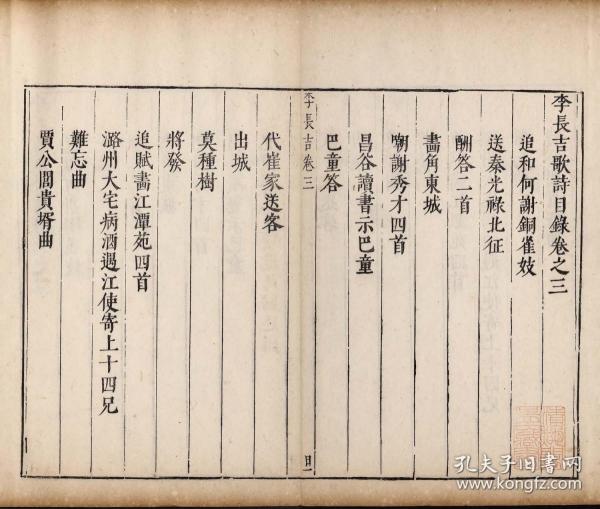 李長吉歌詩目錄卷之三
追和何謝銅雀妓
送秦光祿北征
酬答二首
畵角東城
嘲謝秀才四首
昌谷讀書示巴童
巴童答
李長吉卷三
目
代崔家送客
出城
莫種樹
將發
追賦畵江潭苑四首
潞州大宅病酒遇江使寄上十四兄
難忘曲
賈公閭貴壻曲
孔夫子旧書网
www.kongfz.com